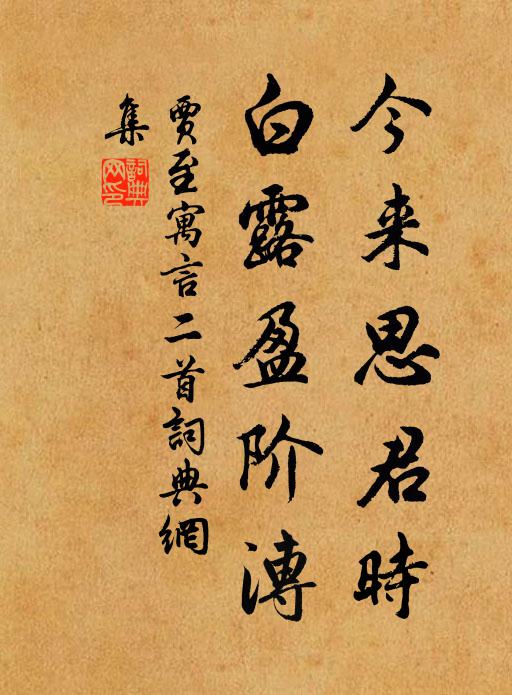 今来思君時
白露盈阶漙
賈至寓言二首詞典網
集
詞典
网印